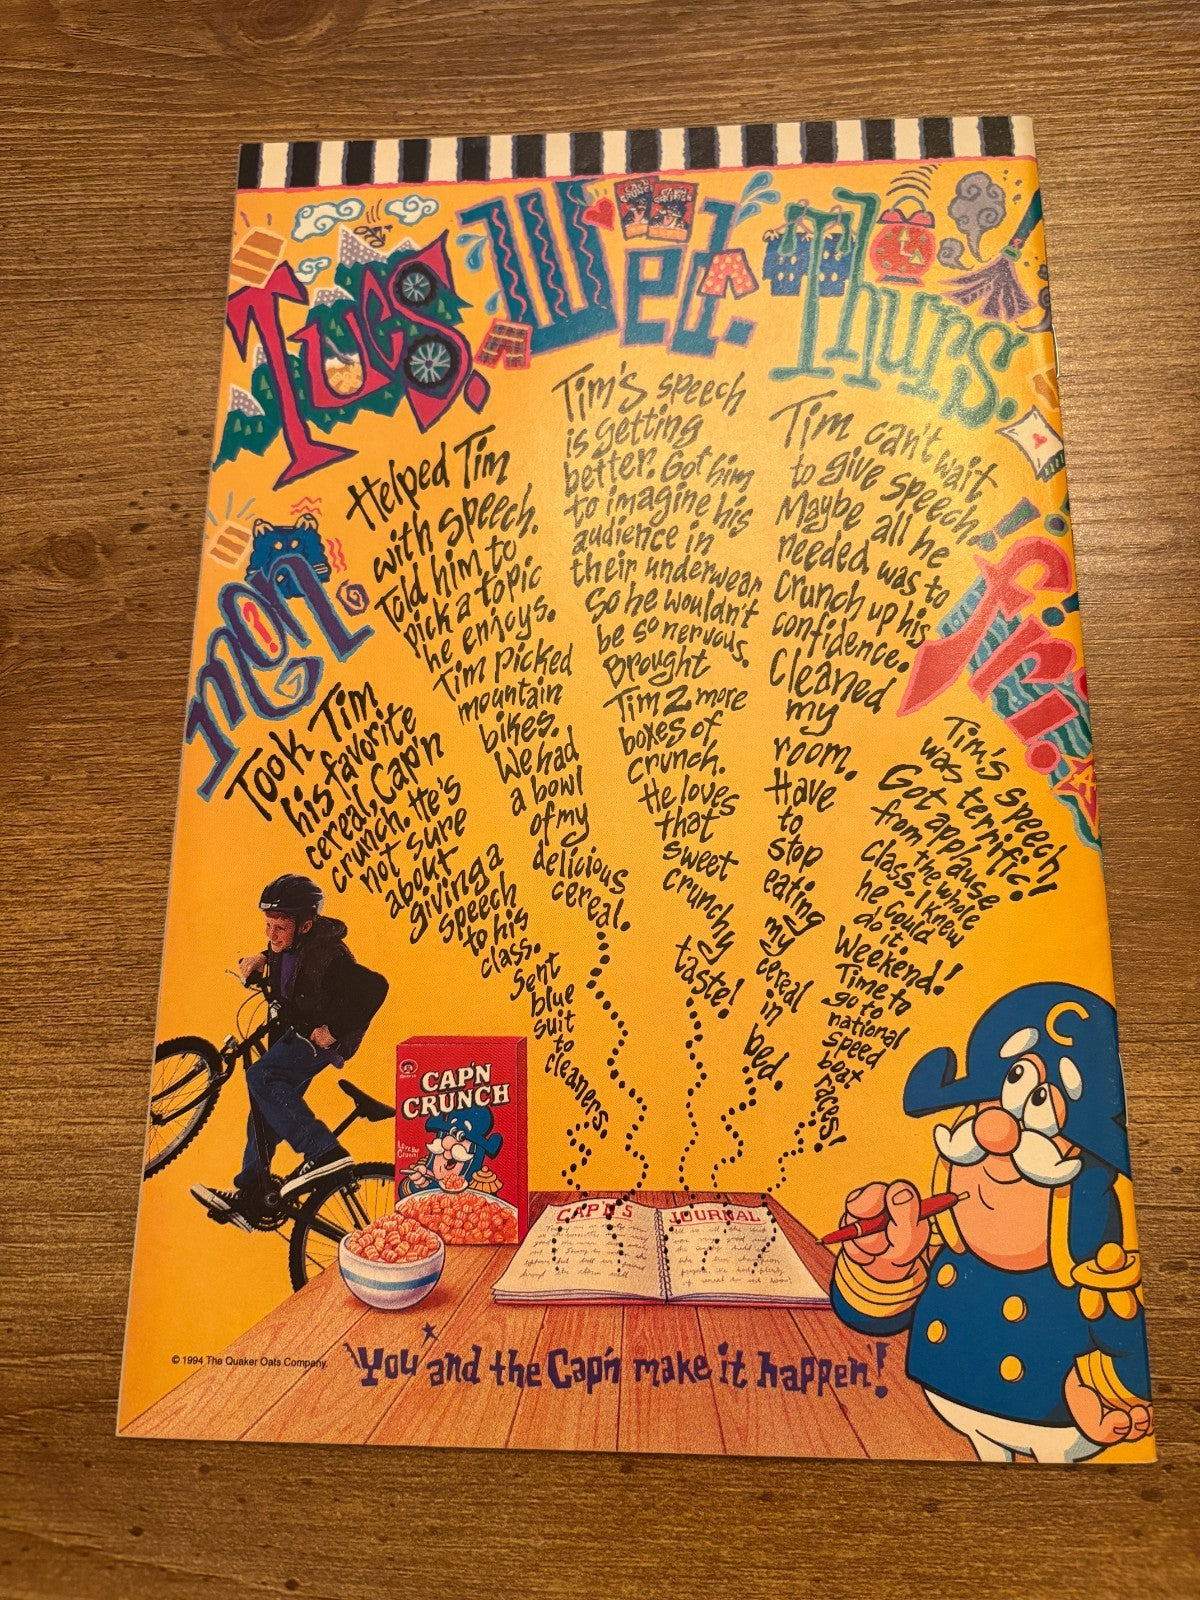 Mon.
Took Tim
his favorite
cereal, Cap'n
Crunch. He's
not sure
about
giving a
speech
to his
class.
Sent
blue
suit
to
cleaners.
Tues.
Helped Tim
with speech.
Told him to
pick a topic
he enjoys.
Tim picked
mountain
bikes.
We had
a bowl
of my
delicious
cereal.
Wed.
Tim's speech
is getting
better. Got him
to imagine his
audience in
their underwear
so he wouldn't
be so nervous.
Brought
Tim 2 more
boxes of
crunch.
He loves
that
sweet
crunchy
taste!
Thurs.
Tim can't wait
to give speech.
Maybe all he
needed was to
crunch up his
confidence.
Cleaned
my
room.
Have
to
stop
eating
my
cereal
in
bed.
Fri.
Tim's speech
was terrific!
Got applause
from the whole
class. I knew
he could
do it.
Weekend!
Time to
go to
national
speed
boat
races!
CAP'N
CRUNCH
CAP'N'S JOURNAL
C
© 1994 The Quaker Oats Company.
You and the Cap'n make it happen!